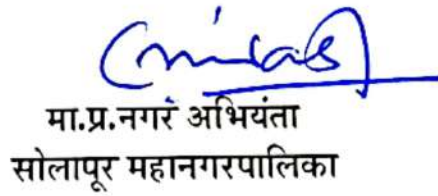 मा.प्र.नगरं अभियंता
सोलापूर महानगरपालिका